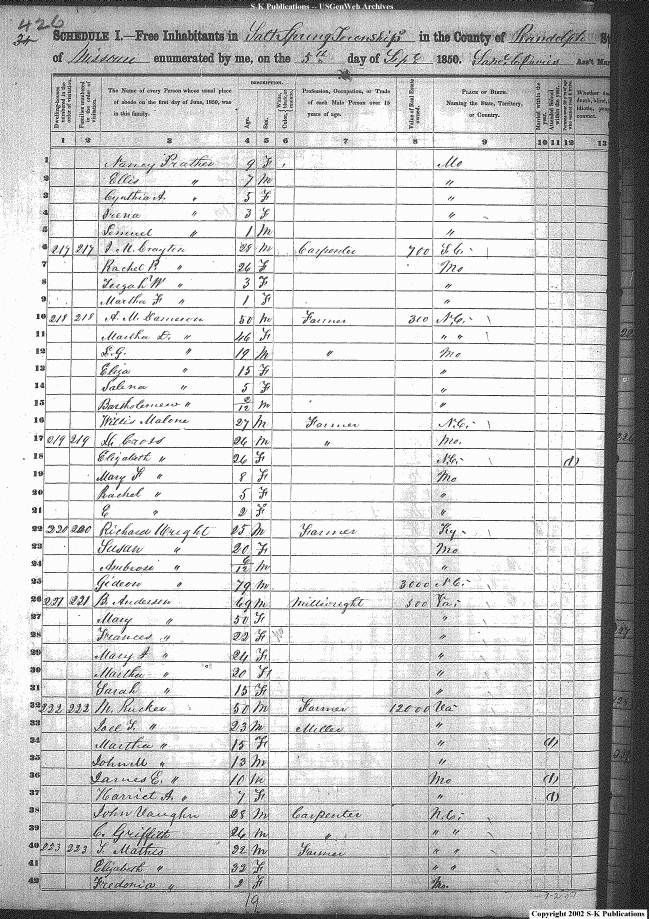 S-K Publications -- USGenWeb Archives
426
SCHEDULE I.—Free Inhabitants in Salt Spring Township in the County of Randolph
of Missouri enumerated by me, on the 5th day of Sept 1850.
DESCRIPTION.
Dwelling-houses numbered in the order of visitation.
Families numbered in the order of visitation.
The Name of every Person whose usual place of abode on the first day of June, 1850, was in this family.
Age.
Sex.
Profession, Occupation, or Trade of each Male Person over 15 years of age.
Value of Real Estate owned.
PLACE OF BIRTH. Naming the State, Territory, or Country.
Married within the year.
Attended School within the year.
1 2 3 4 5 6 7 8 9 10 11 12 13
1 Nancy Prather 9 F Mo
2 Ellis " 7 M "
3 Cynthia A. " 5 F "
4 " 3 F "
5 Lemuel " 1 M "
6 217 217 J. M. Crayton 28 M Carpenter 700 S.C.
7 Rachel P. " 26 F Mo
8 " 3 F "
9 Martha F " 1 F "
10 218 218 A. M. Dameron 50 M Farmer 300 N.C.
11 Martha D. " 46 F " "
12 " 19 M " Mo
13 Eliza " 15 F "
14 Salena " 5 F "
15 Bartholemew " 2/12 M "
16 Willis Malone 27 M Farmer N.C.
17 219 219 Cross 26 M " Mo.
18 Elizabeth " 26 F N.C. (1)
19 Mary F " 8 F Mo
20 Rachel " 5 F "
21 E " 2 F "
22 220 220 Richard Wright 25 M Farmer Ky
23 Susan " 20 F Mo
24 Ambrose " 6/12 M "
25 Gideon " 79 M 3000 N.C.
26 221 221 B. Anderson 69 M Millwright 500 Va.
27 Mary " 50 F "
28 Frances " 22 F "
29 Mary J " 24 F "
30 Martha " 20 F "
31 Sarah " 15 F "
32 222 222 M. Rucker 50 M Farmer 12000 Va
33 Joel T. " 23 M Miller "
34 Martha " 15 F " (1)
35 John M " 13 M "
36 James E. " 10 M Mo (1)
37 Harriet A. " 7 F " (1)
38 John Vaughn 28 M Carpenter N.C.
39 C. Griffith 26 M " " "
40 223 223 S. Mathis 22 M Farmer " "
41 Elizabeth " 32 F " "
42 Fredonia " 2 F Mo.
19
Copyright 2002 S-K Publications